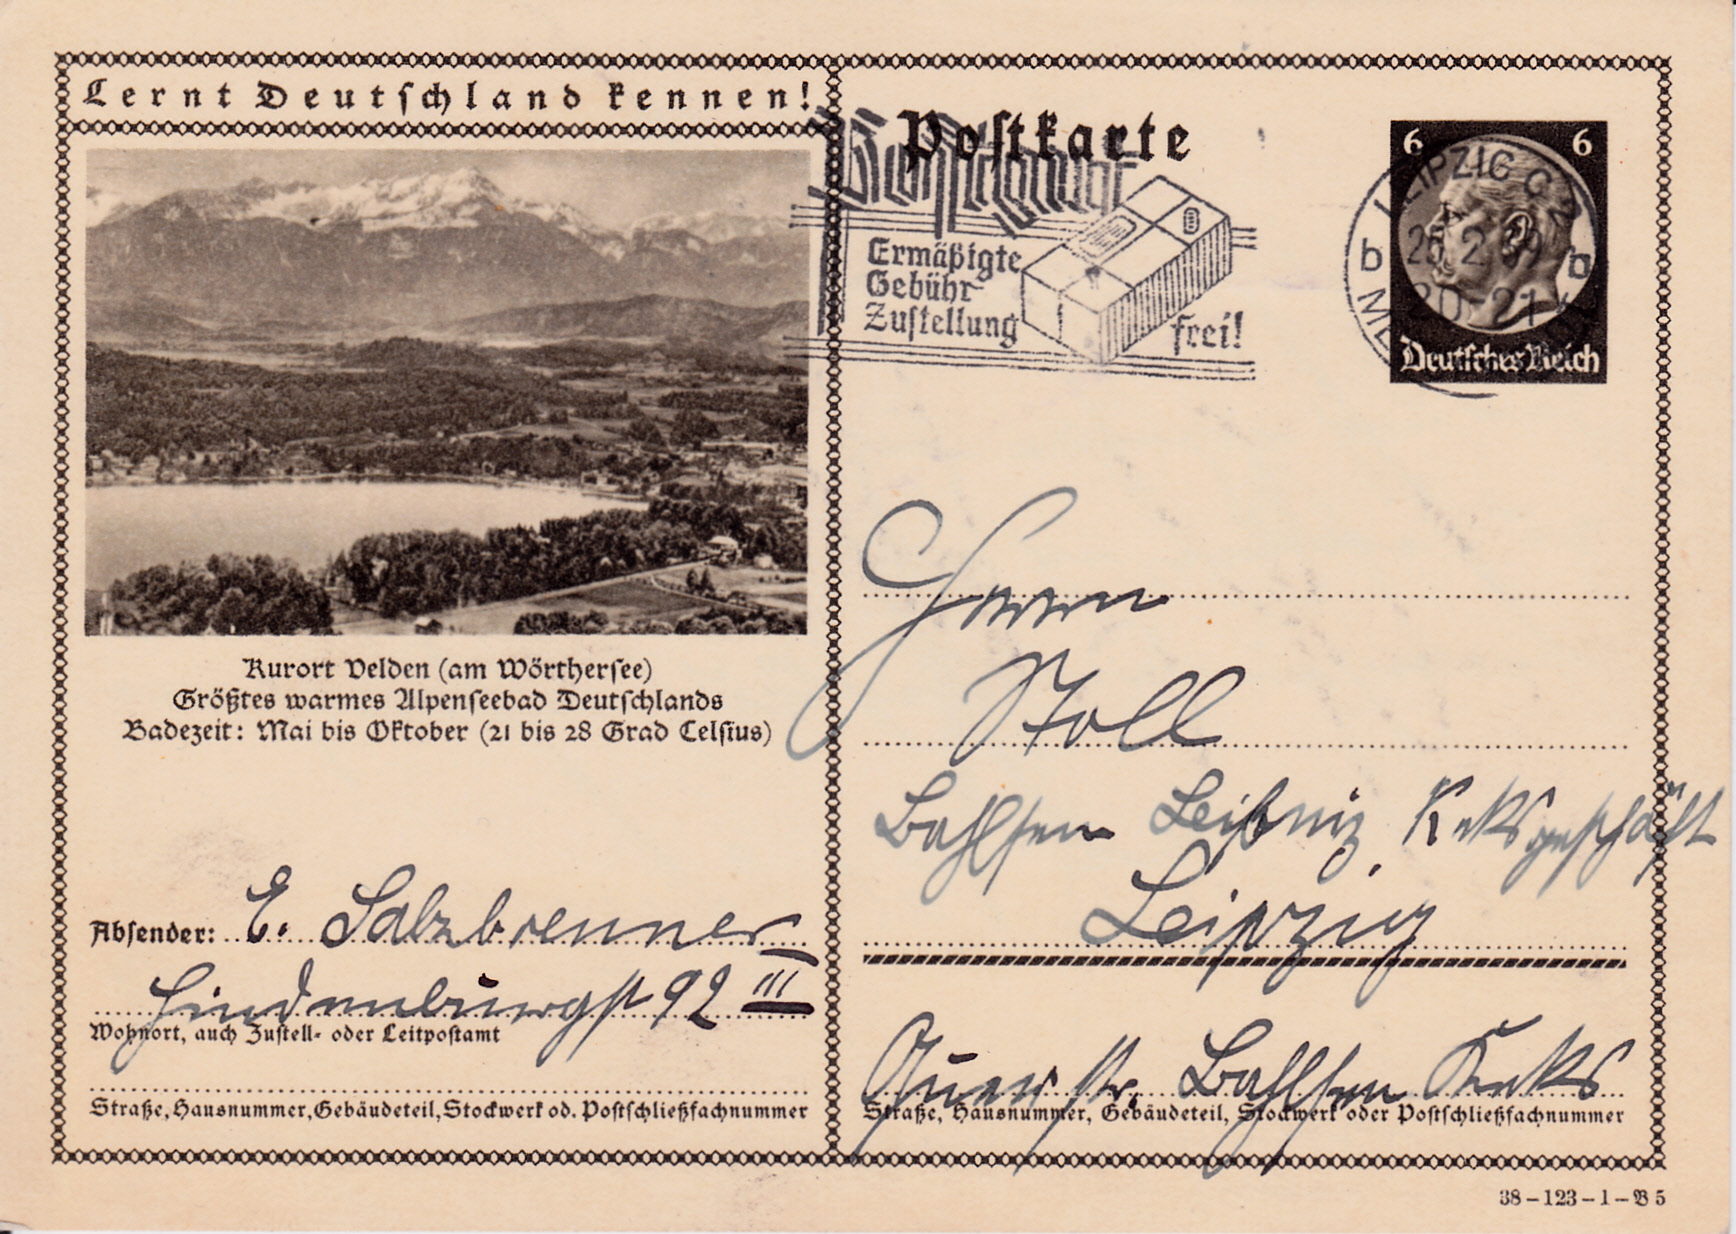 Lernt Deutschland kennen!
Kurort Velden (am Wörthersee)
Größtes warmes Alpenseebad Deutschlands
Badezeit: Mai bis Oktober (21 bis 28 Grad Celsius)
Absender: E. Salzbrenner
Hindenburgst 92 III
Wohnort, auch Zustell- oder Leitpostamt
Straße, Hausnummer, Gebäudeteil, Stockwerk od. Postschließfachnummer
Postkarte
Ermäßigte
Gebühr
Zustellung
frei!
6 6
LEIPZIG C 2
b b
2.39
20-21
Deutsches Reich
Herrn
Stoll
Bahlsen Leibniz Keksgeschäft
Leipzig
Querstr. Bahlsen Keks
Straße, Hausnummer, Gebäudeteil, Stockwerk oder Postschließfachnummer
38-123-1-B5